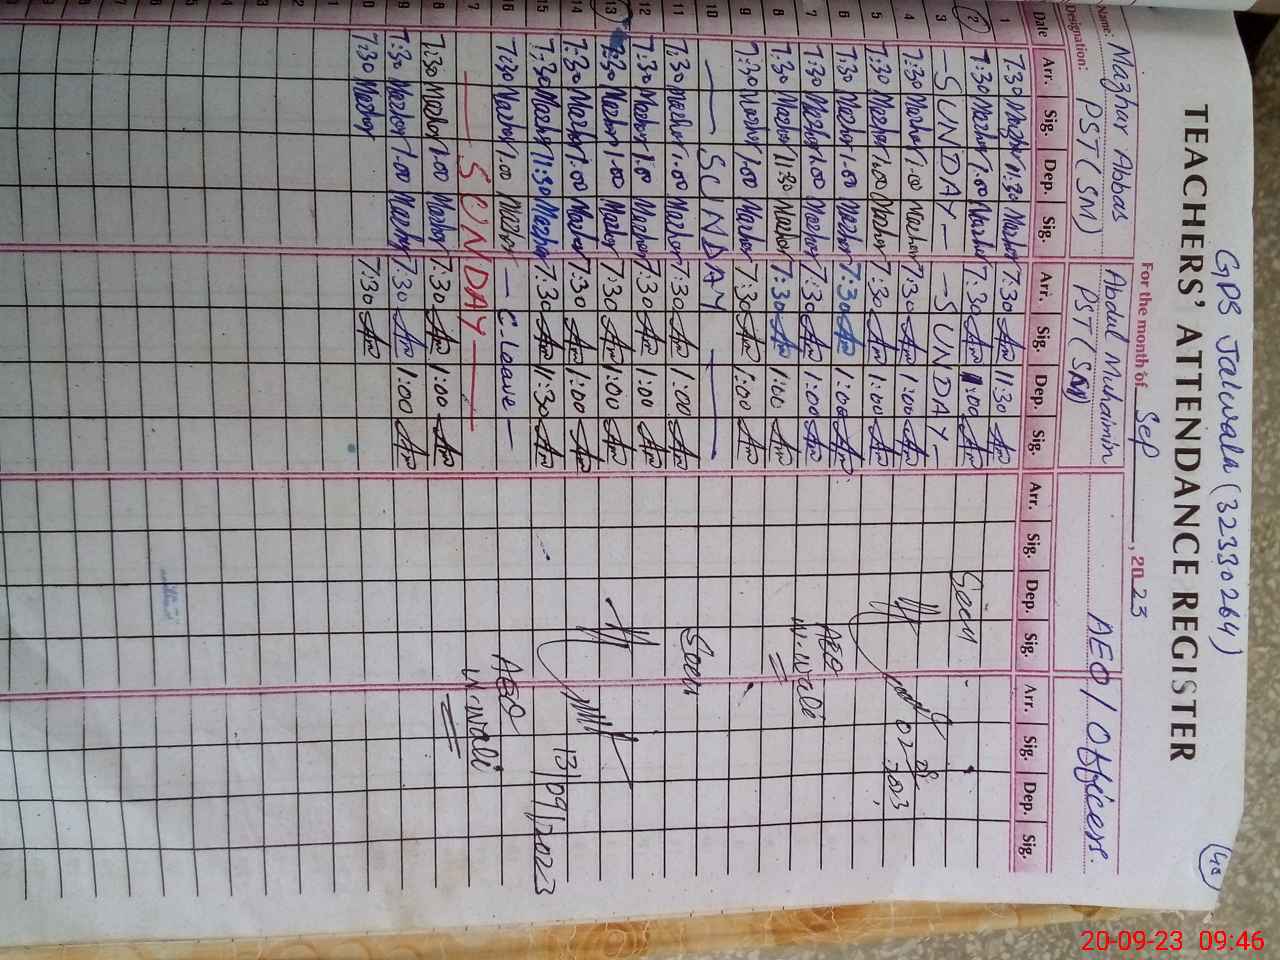 GPS Jalwala (32330264)
48
TEACHERS' ATTENDANCE REGISTER
For the month of Sep, 2023
Name: Mazhar Abbas Abdul Muhaimin AEO / Officers.
Designation: PST (SM) PST (SM)
Date Arr. Sig. Dep. Sig. Arr. Sig. Dep. Sig. Arr. Sig. Dep. Sig. Arr. Sig. Dep. Sig.
1 7:30 Mazhar 11:30 Mazhar 7:30 Am 11:30 Am
2 7:30 Mazhar 1:00 Mazhar 7:30 Am 1:00 Am Seen
3 — SUNDAY — — SUNDAY —
4 7:30 Mazhar 1:00 Mazhar 7:30 Am 1:00 Am
5 7:30 Mazhar 1:00 Mazhar 7:30 Am 1:00 Am
6 7:30 Mazhar 1:00 Mazhar 7:30 Am 1:00 Am
7 7:30 Mazhar 1:00 Mazhar 7:30 Am 1:00 Am AEO
8 7:30 Mazhar 11:30 Mazhar 7:30 Am 1:00 Am
9 7:30 Mazhar 1:00 Mazhar 7:30 Am 1:00 Am
10 — SUNDAY —
11 7:30 Mazhar 1:00 Mazhar 7:30 Am 1:00 Am Seen
12 7:30 Mazhar 1:00 Mazhar 7:30 Am 1:00 Am
13 7:30 Mazhar 1:00 Mazhar 7:30 Am 1:00 Am
14 7:30 Mazhar 1:00 Mazhar 7:30 Am 1:00 Am
15 7:30 Mazhar 11:30 Mazhar 7:30 Am 11:30 Am 13/09/2023
16 7:30 Mazhar 1:00 Mazhar — C leave — AEO
17 — SUNDAY —
18 7:30 Mazhar 1:00 Mazhar 7:30 Am 1:00 Am
19 7:30 Mazhar 1:00 Mazhar 7:30 Am 1:00 Am
7:30 Mazhar 7:30 Am
20-09-23 09:46